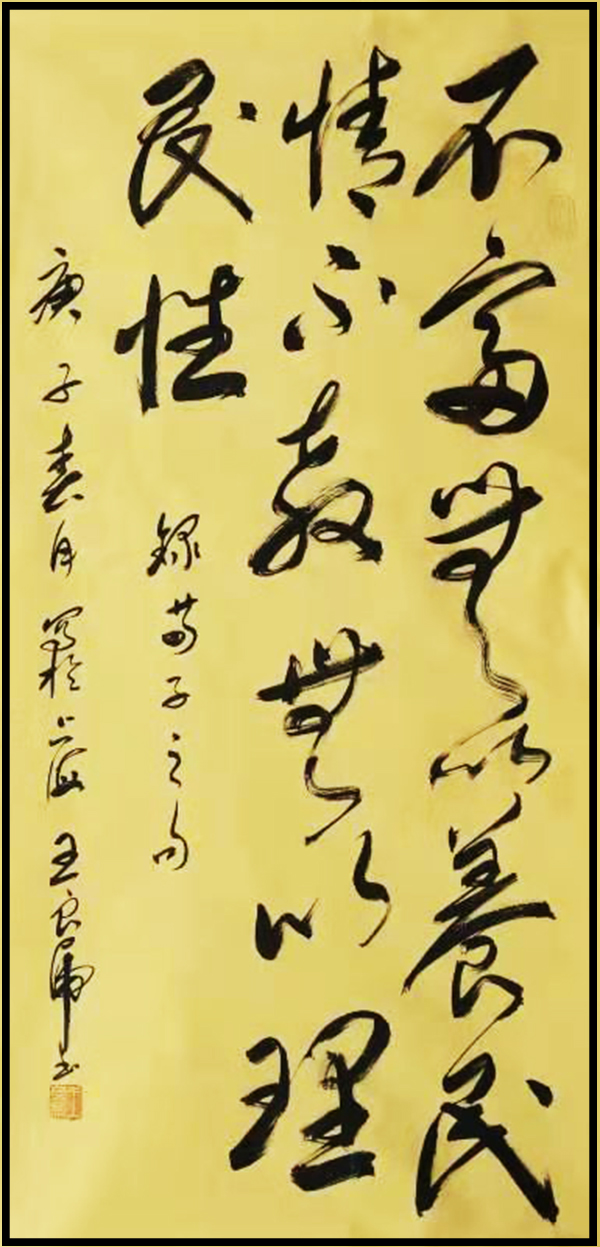 不富無以養民
情不教無以理
民性
錄荀子之句
庚子春月寫於上海王良虎書